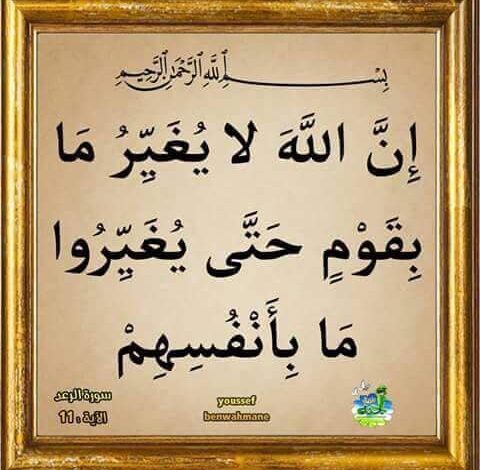 بِسْمِ اللَّهِ الرَّحْمَٰنِ الرَّحِيمِ
إِنَّ اللَّهَ لا يُغَيِّرُ مَا
بِقَوْمٍ حَتَّى يُغَيِّرُوا
مَا بِأَنْفُسِهِمْ
سورة الرعد
الآية : 11
youssef
benwahmane